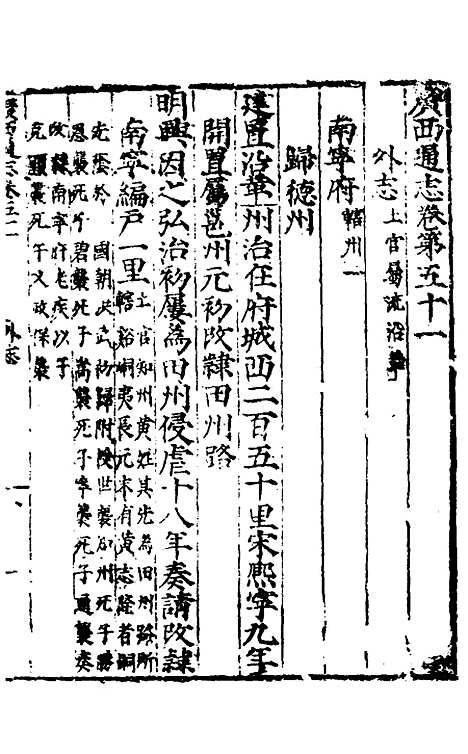 廣西通志卷第五十一
外志 土官屬流沿革
南寧府 轄州一
歸德州
建置沿革州治在府城西二百五十里宋熙寧九年
開置屬邕州元初改隸田州路
明興因之弘治初屢為田州侵虐十八年奏請改隸
南寧編戶一里 土官知州黃姓其先為田州路所
轄谿峒夷長元末有黃志隆者嗣
志隆於 國朝洪武初歸附授世襲知州死子勝
恩襲死子碧襲死子嵩襲死子寧襲死子通襲奏
改隸南寧府老疾以子
襲死子又政保襲
廣西通志卷五十一
外志
一